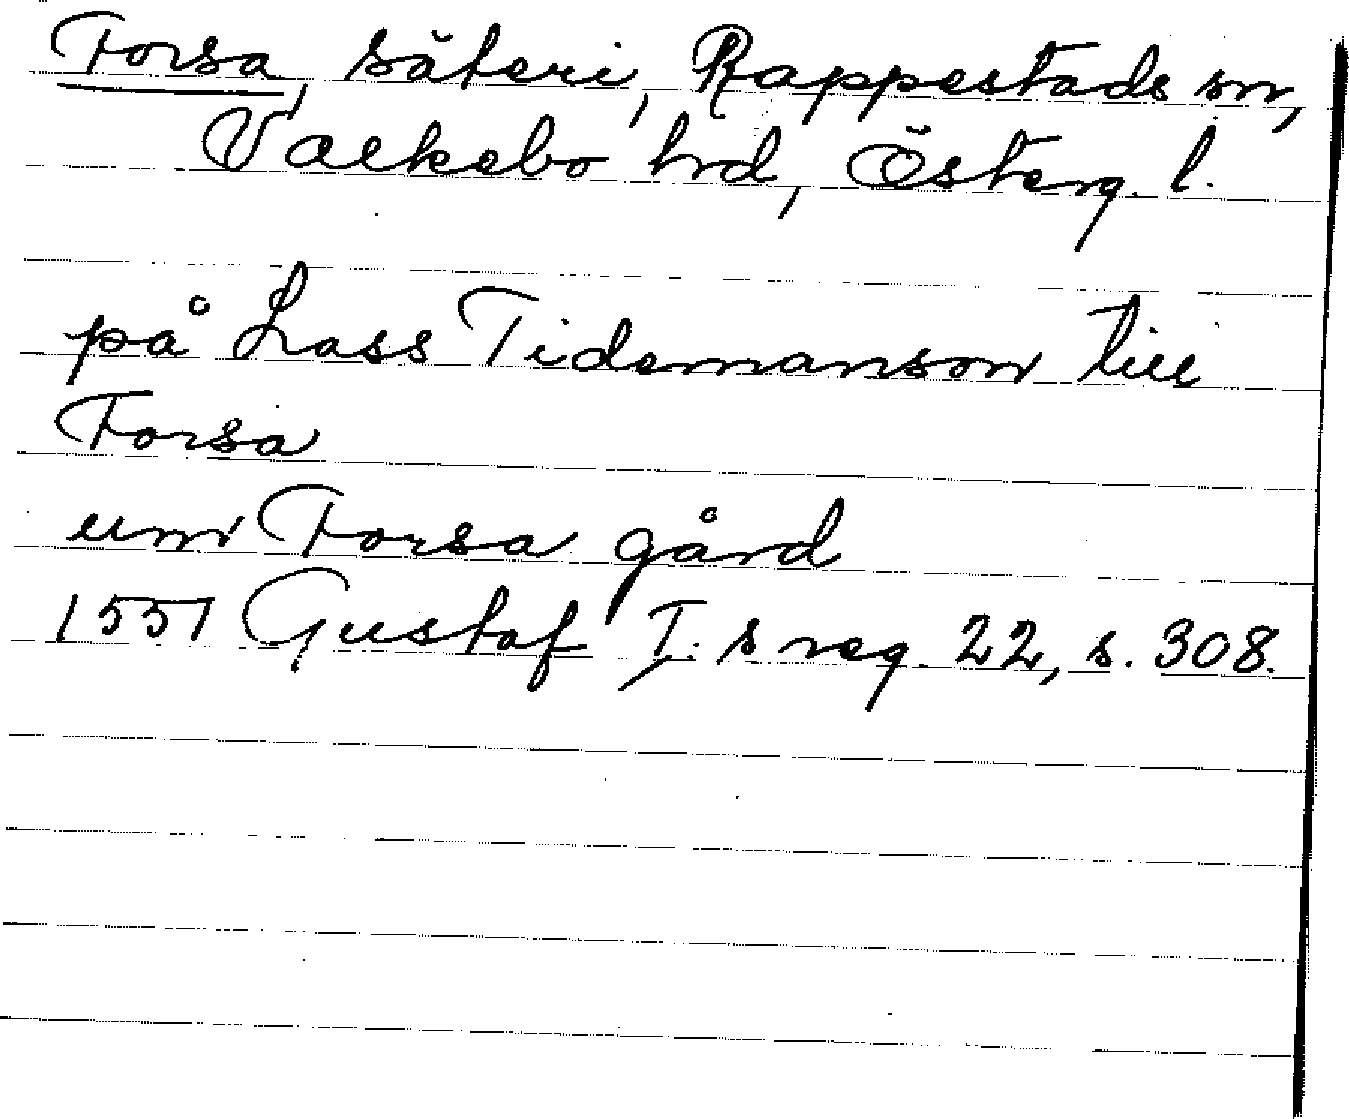 Forsa, säteri, Rappestads sn,
Valkebo hrd, Österg. l.
på Lass Tidemanson till
Forsa
um Forsa gård
1551 Gustaf I:s reg. 22, s. 308.